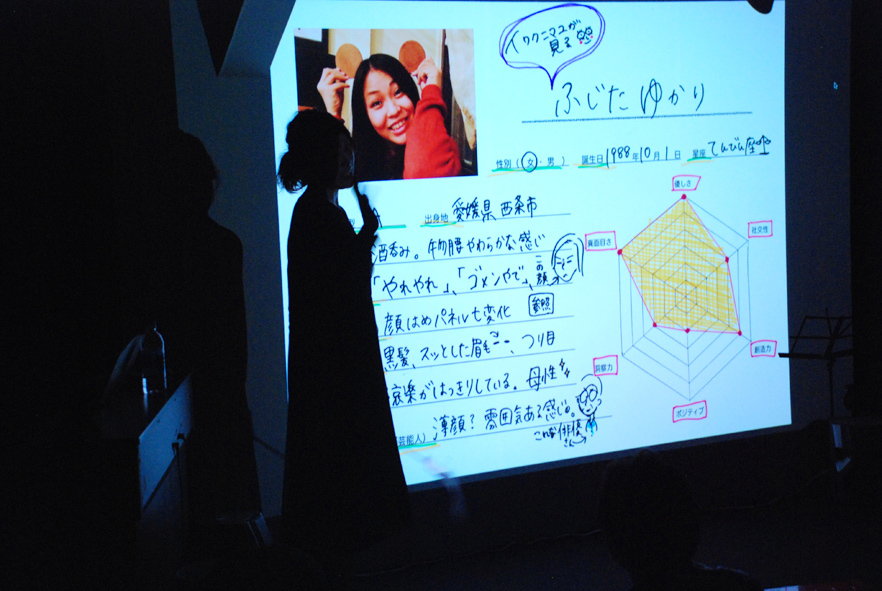 イワクニマユが
見る
ふじた ゆかり
性別（女・男） 誕生日 1988年10月1日 星座 てんびん座
出身地 愛媛県 西条市
酒呑み。物腰やわらかな感じ
「やれやれ」、「ゴメンやで」、この顔
顔はめパネルも変化 参照
黒髪、スッとした眉毛、つり目
哀楽がはっきりしている。母性
芸能人） 薄顔？ 雰囲気ある感じの。
こんな俳優さん
優しさ
社交性
創造力
ポジティブ
洞察力
真面目さ